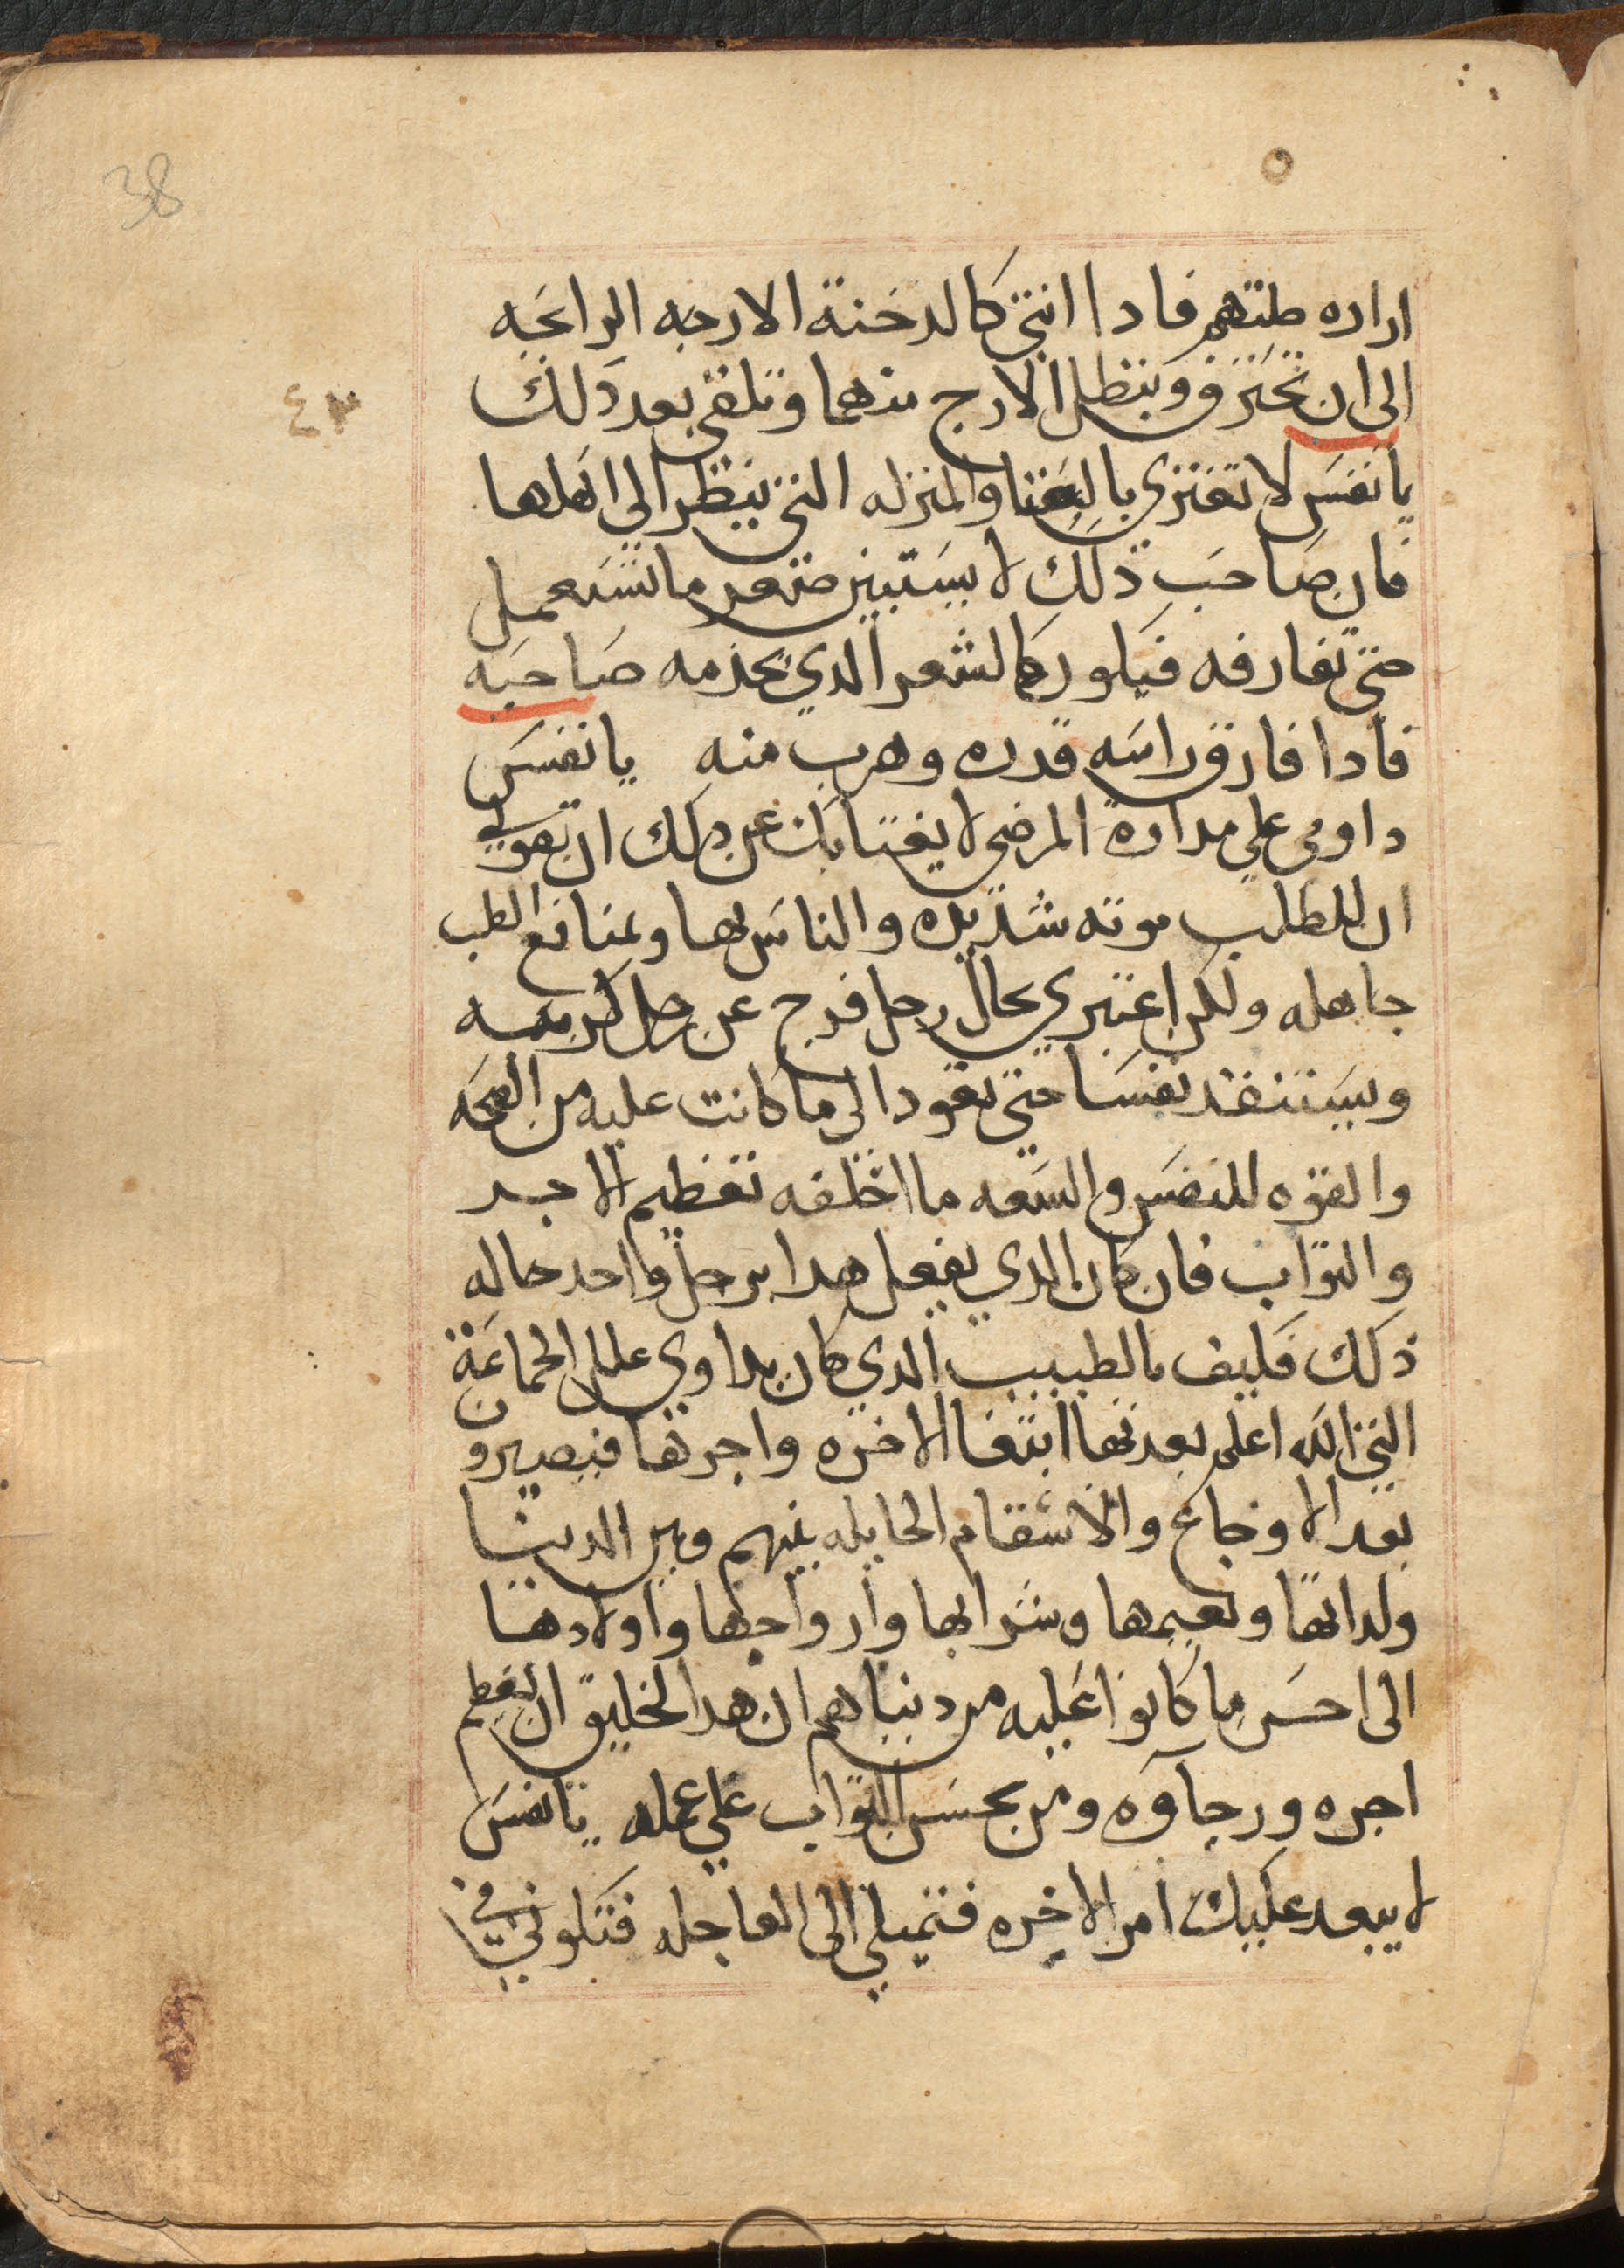 38
٤٣
اراده طبتهم فادا انتي كالدخنة الارجه الرايحه
الى ان تحترق ويبطل الارج منها وتلقى بعد ذلك
يا نفس لا تغتري بالغنا والمنزله التي ينظر الي اهلها
فان صاحب ذلك لا يستبين صغر ما تستعمل
حتى تفارقه فيكون كالشعر الدي يخدمه صاحبه
فادا فارق راسه قدره وهرب منه يا نفس
داومي علي مداراة المرضى لا يغتابك عن ذلك ان تقولي
ان للطلب مونه شديده والناس بها وبمنافع الطب
جاهله ولكن اعتبري بحال رجل فرج عن رجل كربته
ويستنقد نفسا حتى تعود الى ما كانت عليه من الصحه
والقوه للنفس والسعه ما اخلفه تعظيم الاجر
والتواب فان كان الدي يفعل هدا برجل واحد حاله
ذلك فكيف بالطبيب الدي كان يداوي علل الجماعة
التي الله اعلم بعدتها ابتغا الاخره واجرها فيصيرون
بعد الاوجاع والاسقام الحايله بينهم وبين الدنيا
ولداتها ونعيمها وشرابها وازواجها واولادها
الى احسن ما كانوا عليه من دنياهم ان هدا لخليق ان يعظم
اجره ورجاوه ومن يحسن التواب علي عمله يا نفس
لا يبعد عليك امر الاخره فتميلي الى العاجله فتكوني في